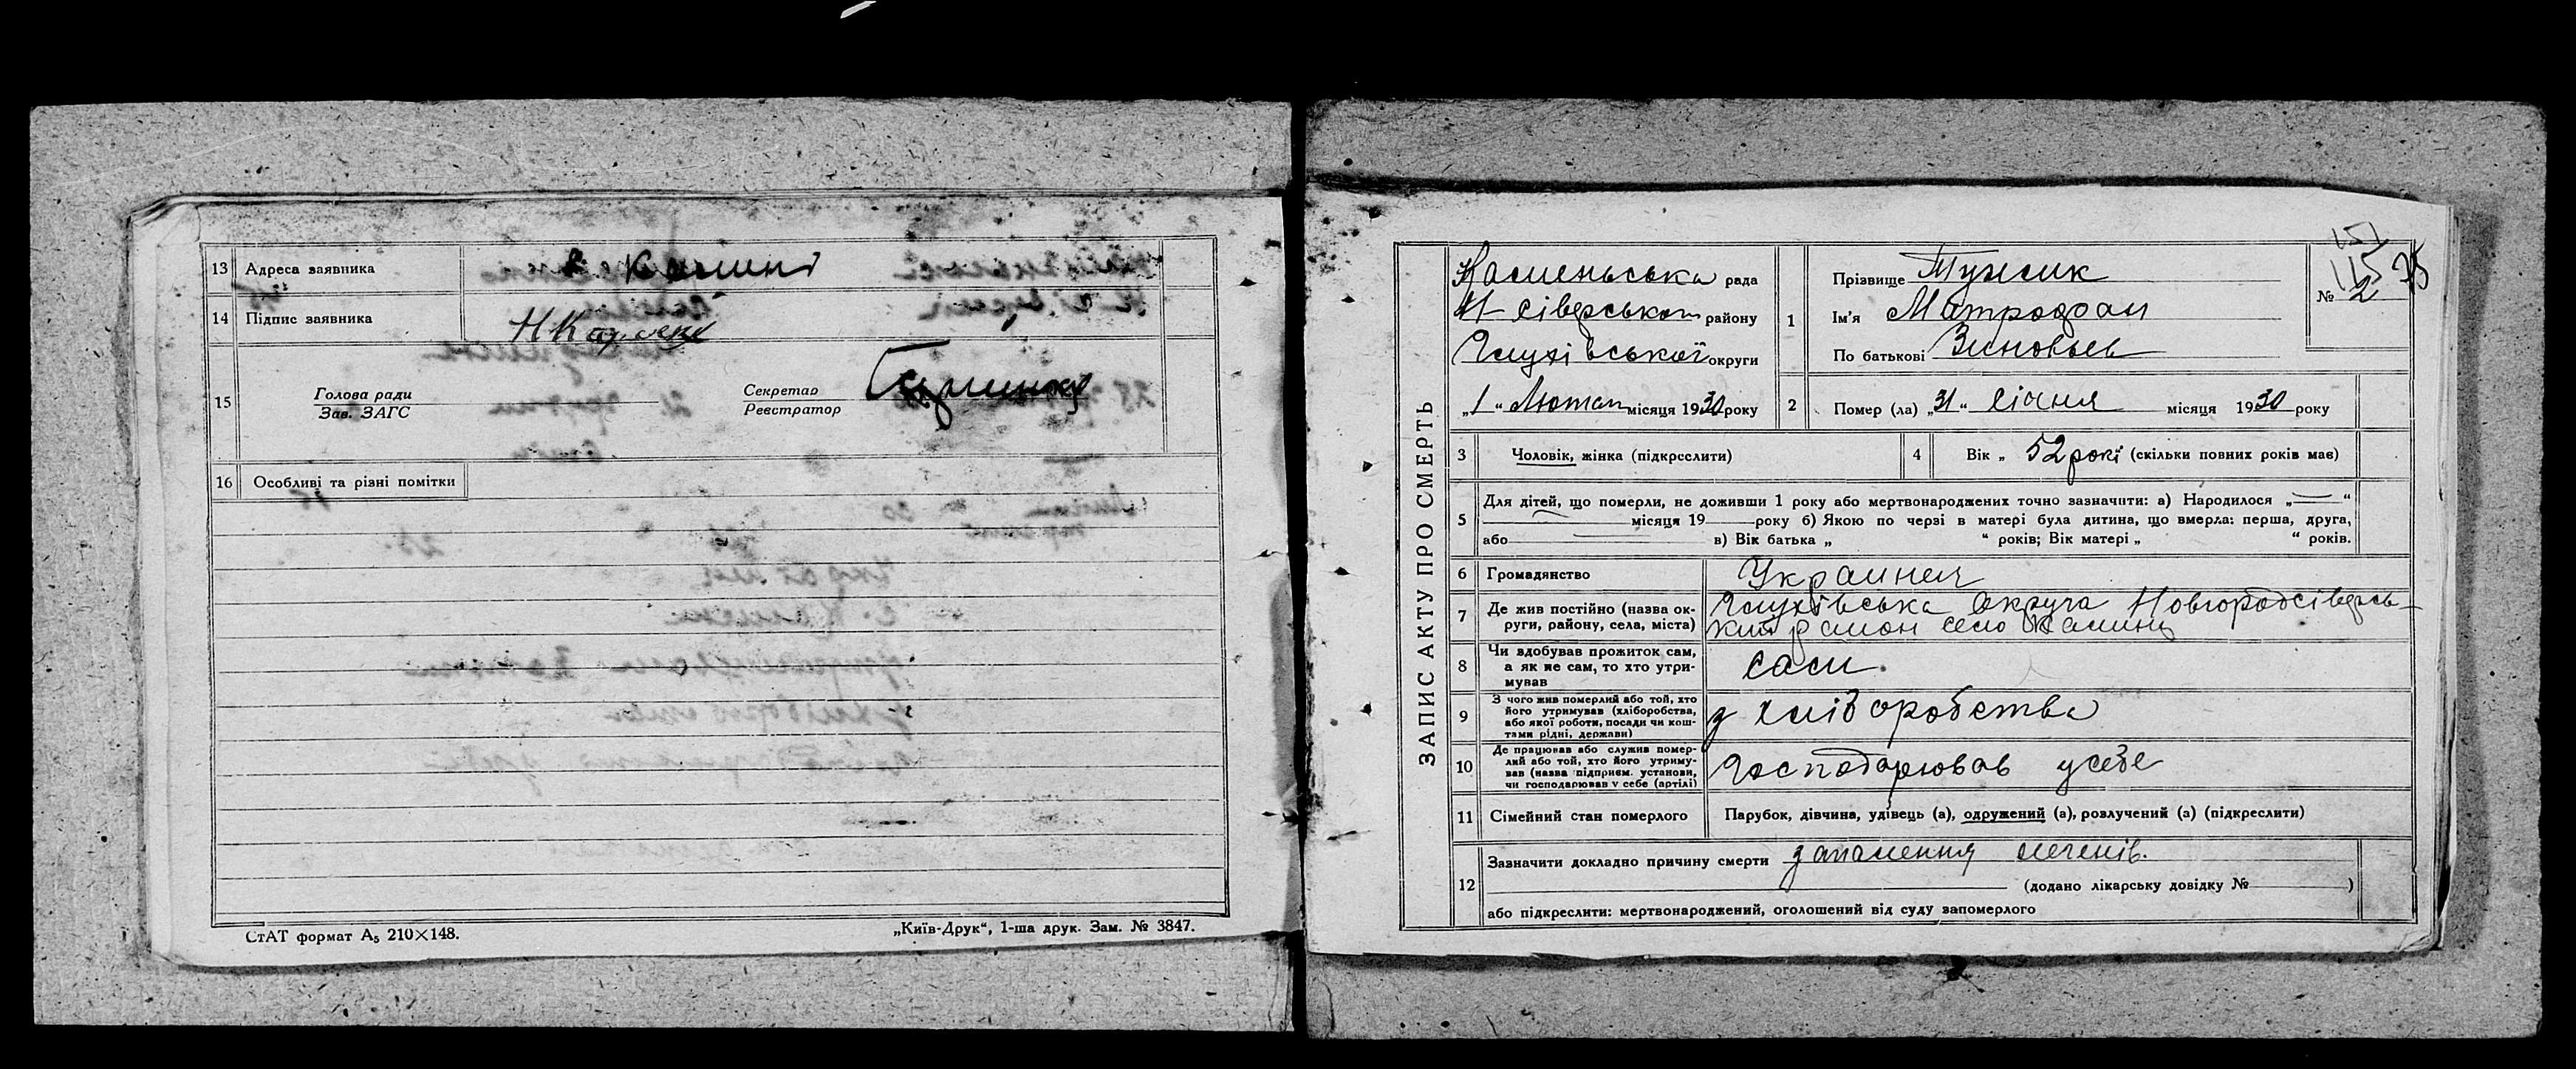 13 Адреса заявника с. Камінь
14 Підпис заявника
15 Голова ради
Зав. ЗАГС
Секретар
Реєстратор
16 Особливі та різні помітки
СтАТ формат А5 210×148.
„Київ-Друк“, 1-ша друк. Зам. № 3847.
ЗАПИС АКТУ ПРО СМЕРТЬ
Каменьська рада
Н-Сіверського району
Глухівської округи
„1“ Лютого місяця 1930 року
1 Прізвище Тужик
Ім’я Митродоан
По батькові Зиновьев
№ 2
151
145
75
2 Помер (ла) „31“ Січня місяця 1930 року
3 Чоловік, жінка (підкреслити)
4 Вік „ 52 рокі (скільки повних років має)
5 Для дітей, що померли, не доживши 1 року або мертвонароджених точно зазначити: а) Народилося „ — “
місяця 19 року б) Якою по черзі в матері була дитина, що вмерла: перша, друга,
або в) Вік батька „ “ років; Вік матері „ “ років.
6 Громадянство Украинец
7 Де жив постійно (назва ок-
руги, району, села, міста)
Глухівська округа Новгородсіверсь-
кий район село Камінь
8 Чи здобував прожиток сам,
а як не сам, то хто утри-
мував
сам.
9 З чого жив померлий або той, хто
його утримував (хліборобства,
або якої роботи, посади чи кош-
тами рідні, держави)
з хліборобства
10 Де працював або служив помер-
лий або той, хто його утриму-
вав (назва підприєм. установи,
чи господарював у себе (артілі)
Господарював усебе
11 Сімейний стан померлого Парубок, дівчина, удівець (а), одружений (а), розлучений (а) (підкреслити)
12 Зазначити докладно причину смерти запалення легенів.
(додано лікарську довідку № )
або підкреслити: мертвонароджений, оголошений від суду запомерлого